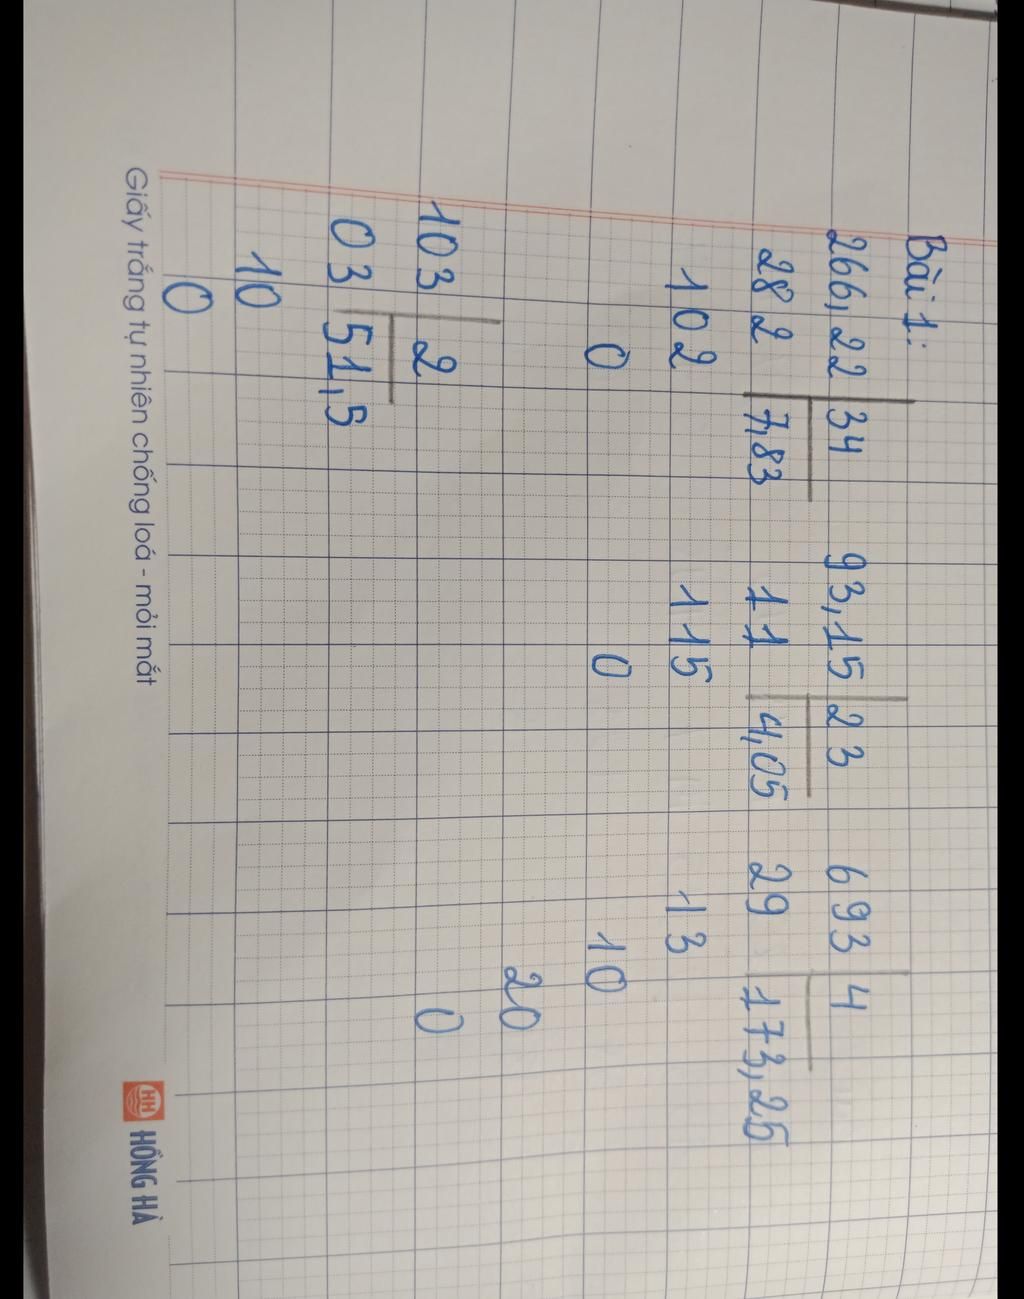 Bài 1:
266,22 34 93,15 23 693 4
282 7,83 11 4,05 29 173,25
102 115 13
0 0 10
20
103 2 0
03 51,5
10
0
Giấy trắng tự nhiên chống loá - mỏi mắt HH HỒNG HÀ